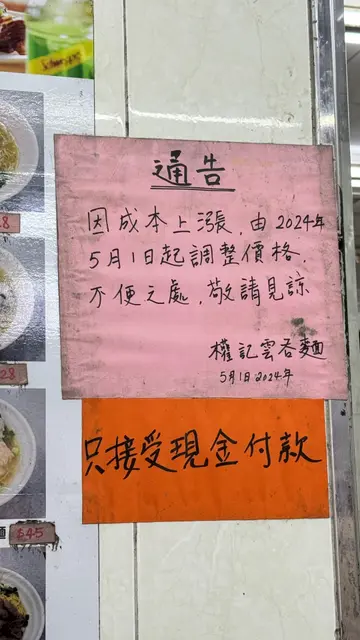 Schweppes
通告
因成本上漲，由2024年
5月1日起調整價格，
不便之處，敬請見諒
權記雲吞麵
5月1日2024年
只接受現金付款
28
麵 $45